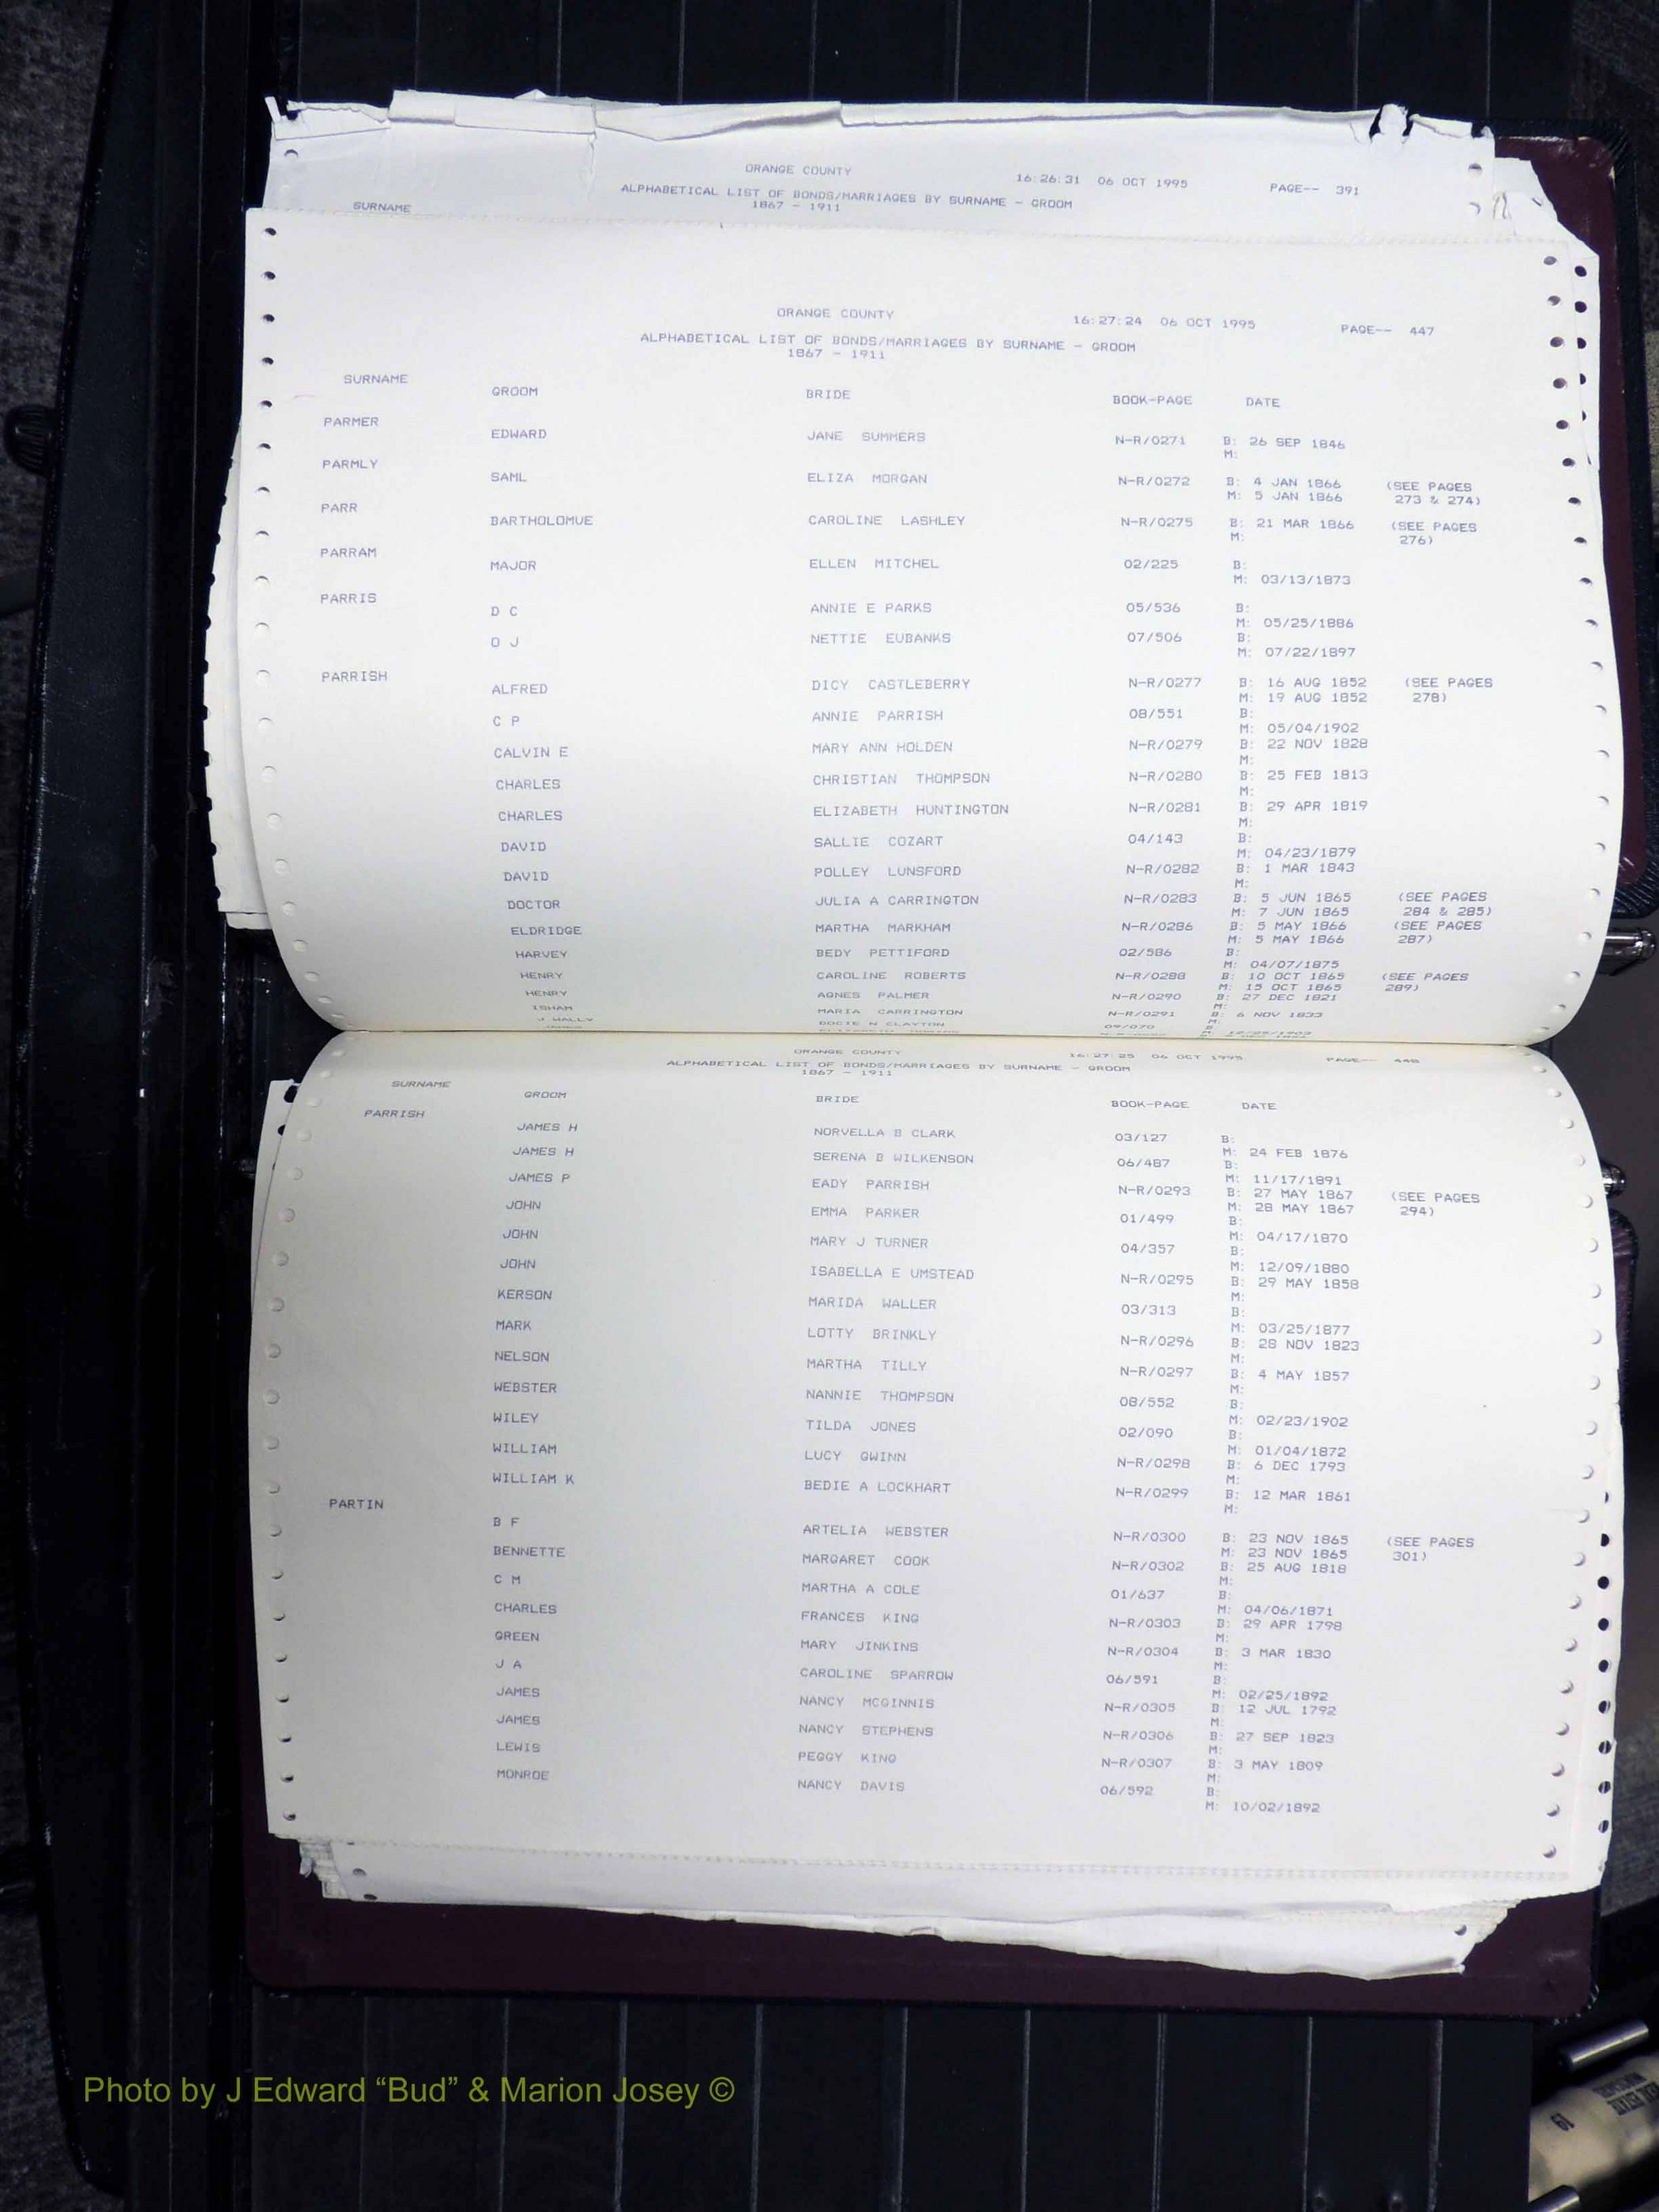 ORANGE COUNTY 16:26:31 06 OCT 1995 PAGE-- 391
ALPHABETICAL LIST OF BONDS/MARRIAGES BY SURNAME - GROOM
1867 - 1911
SURNAME
ORANGE COUNTY 16:27:24 06 OCT 1995 PAGE-- 447
ALPHABETICAL LIST OF BONDS/MARRIAGES BY SURNAME - GROOM
1867 - 1911
SURNAME
GROOM BRIDE BOOK-PAGE DATE
PARMER
EDWARD JANE SUMMERS N-R/0271 B: 26 SEP 1846
M:
PARMLY
SAML ELIZA MORGAN N-R/0272 B: 4 JAN 1866 (SEE PAGES
M: 5 JAN 1866 273 & 274)
PARR
BARTHOLOMUE CAROLINE LASHLEY N-R/0275 B: 21 MAR 1866 (SEE PAGES
M: 276)
PARRAM
MAJOR ELLEN MITCHEL 02/225 B:
M: 03/13/1873
PARRIS
D C ANNIE E PARKS 05/536 B:
M: 05/25/1886
O J NETTIE EUBANKS 07/506 B:
M: 07/22/1897
PARRISH
ALFRED DICY CASTLEBERRY N-R/0277 B: 16 AUG 1852 (SEE PAGES
M: 19 AUG 1852 278)
C P ANNIE PARRISH 08/551 B:
M: 05/04/1902
CALVIN E MARY ANN HOLDEN N-R/0279 B: 22 NOV 1828
M:
CHARLES CHRISTIAN THOMPSON N-R/0280 B: 25 FEB 1813
M:
CHARLES ELIZABETH HUNTINGTON N-R/0281 B: 29 APR 1819
M:
DAVID SALLIE COZART 04/143 B:
M: 04/23/1879
DAVID POLLEY LUNSFORD N-R/0282 B: 1 MAR 1843
M:
DOCTOR JULIA A CARRINGTON N-R/0283 B: 5 JUN 1865 (SEE PAGES
M: 7 JUN 1865 284 & 285)
ELDRIDGE MARTHA MARKHAM N-R/0286 B: 5 MAY 1866 (SEE PAGES
M: 5 MAY 1866 287)
HARVEY BEDY PETTIFORD 02/586 B:
M: 04/07/1875
HENRY CAROLINE ROBERTS N-R/0288 B: 10 OCT 1865 (SEE PAGES
M: 15 OCT 1865 289)
HENRY AGNES PALMER N-R/0290 B: 27 DEC 1821
M:
ISHAM MARIA CARRINGTON N-R/0291 B: 6 NOV 1833
M:
J WALLY DOCIE N CLAYTON 09/070 B:
ORANGE COUNTY 16:27:25 06 OCT 1995 PAGE-- 448
ALPHABETICAL LIST OF BONDS/MARRIAGES BY SURNAME - GROOM
1867 - 1911
SURNAME
GROOM BRIDE BOOK-PAGE DATE
PARRISH
JAMES H NORVELLA B CLARK 03/127 B:
M: 24 FEB 1876
JAMES H SERENA B WILKENSON 06/487 B:
M: 11/17/1891
JAMES P EADY PARRISH N-R/0293 B: 27 MAY 1867 (SEE PAGES
M: 28 MAY 1867 294)
JOHN EMMA PARKER 01/499 B:
M: 04/17/1870
JOHN MARY J TURNER 04/357 B:
M: 12/09/1880
JOHN ISABELLA E UMSTEAD N-R/0295 B: 29 MAY 1858
M:
KERSON MARIDA WALLER 03/313 B:
M: 03/25/1877
MARK LOTTY BRINKLY N-R/0296 B: 28 NOV 1823
M:
NELSON MARTHA TILLY N-R/0297 B: 4 MAY 1857
M:
WEBSTER NANNIE THOMPSON 08/552 B:
M: 02/23/1902
WILEY TILDA JONES 02/090 B:
M: 01/04/1872
WILLIAM LUCY GWINN N-R/0298 B: 6 DEC 1793
M:
WILLIAM K BEDIE A LOCKHART N-R/0299 B: 12 MAR 1861
M:
PARTIN
B F ARTELIA WEBSTER N-R/0300 B: 23 NOV 1865 (SEE PAGES
M: 23 NOV 1865 301)
BENNETTE MARGARET COOK N-R/0302 B: 25 AUG 1818
M:
C M MARTHA A COLE 01/637 B:
M: 04/06/1871
CHARLES FRANCES KING N-R/0303 B: 29 APR 1798
M:
GREEN MARY JINKINS N-R/0304 B: 3 MAR 1830
M:
J A CAROLINE SPARROW 06/591 B:
M: 02/25/1892
JAMES NANCY MCGINNIS N-R/0305 B: 12 JUL 1792
M:
JAMES NANCY STEPHENS N-R/0306 B: 27 SEP 1823
M:
LEWIS PEGGY KING N-R/0307 B: 3 MAY 1809
M:
MONROE NANCY DAVIS 06/592 B:
M: 10/02/1892
Photo by J Edward “Bud” & Marion Josey ©
19